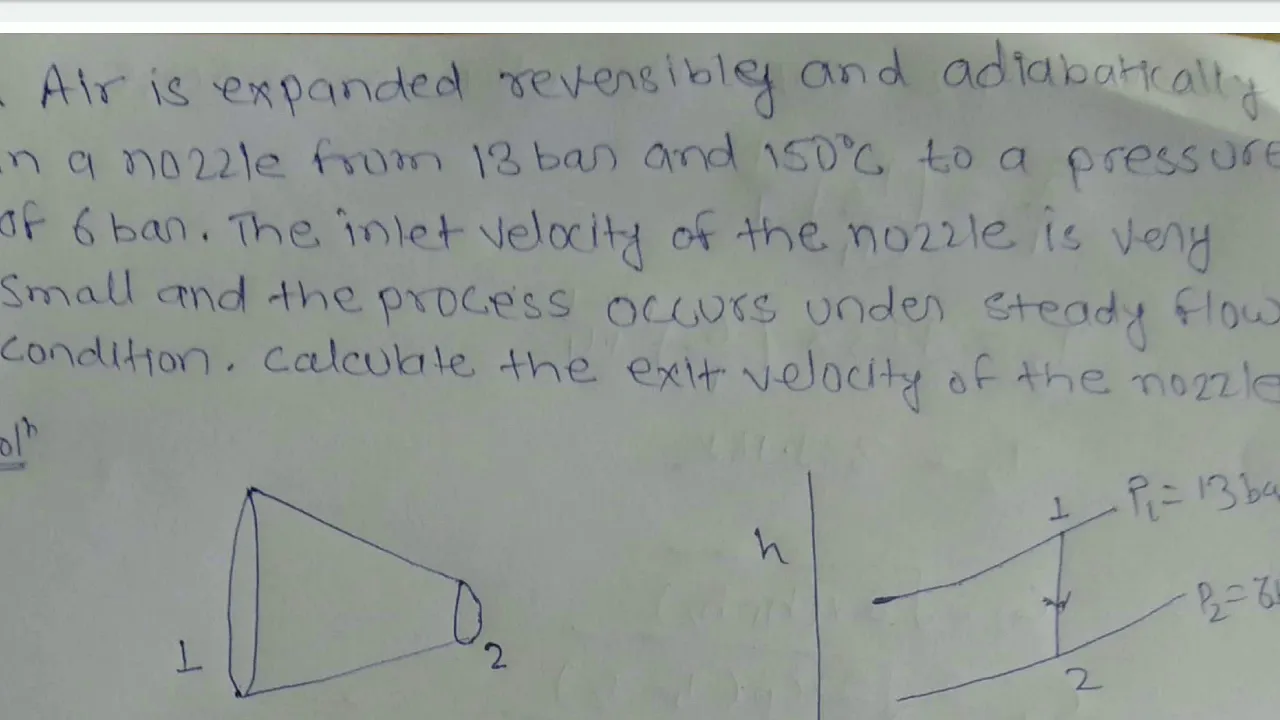 Air is expanded reversibly and adiabatically
in a nozzle from 13 bar and 150°C to a pressure
of 6 bar. The inlet velocity of the nozzle is very
small and the process occurs under steady flow
condition. calculate the exit velocity of the nozzle
Solⁿ
1 P₁ = 13 ba
h
P₂ = 6
1 2
2